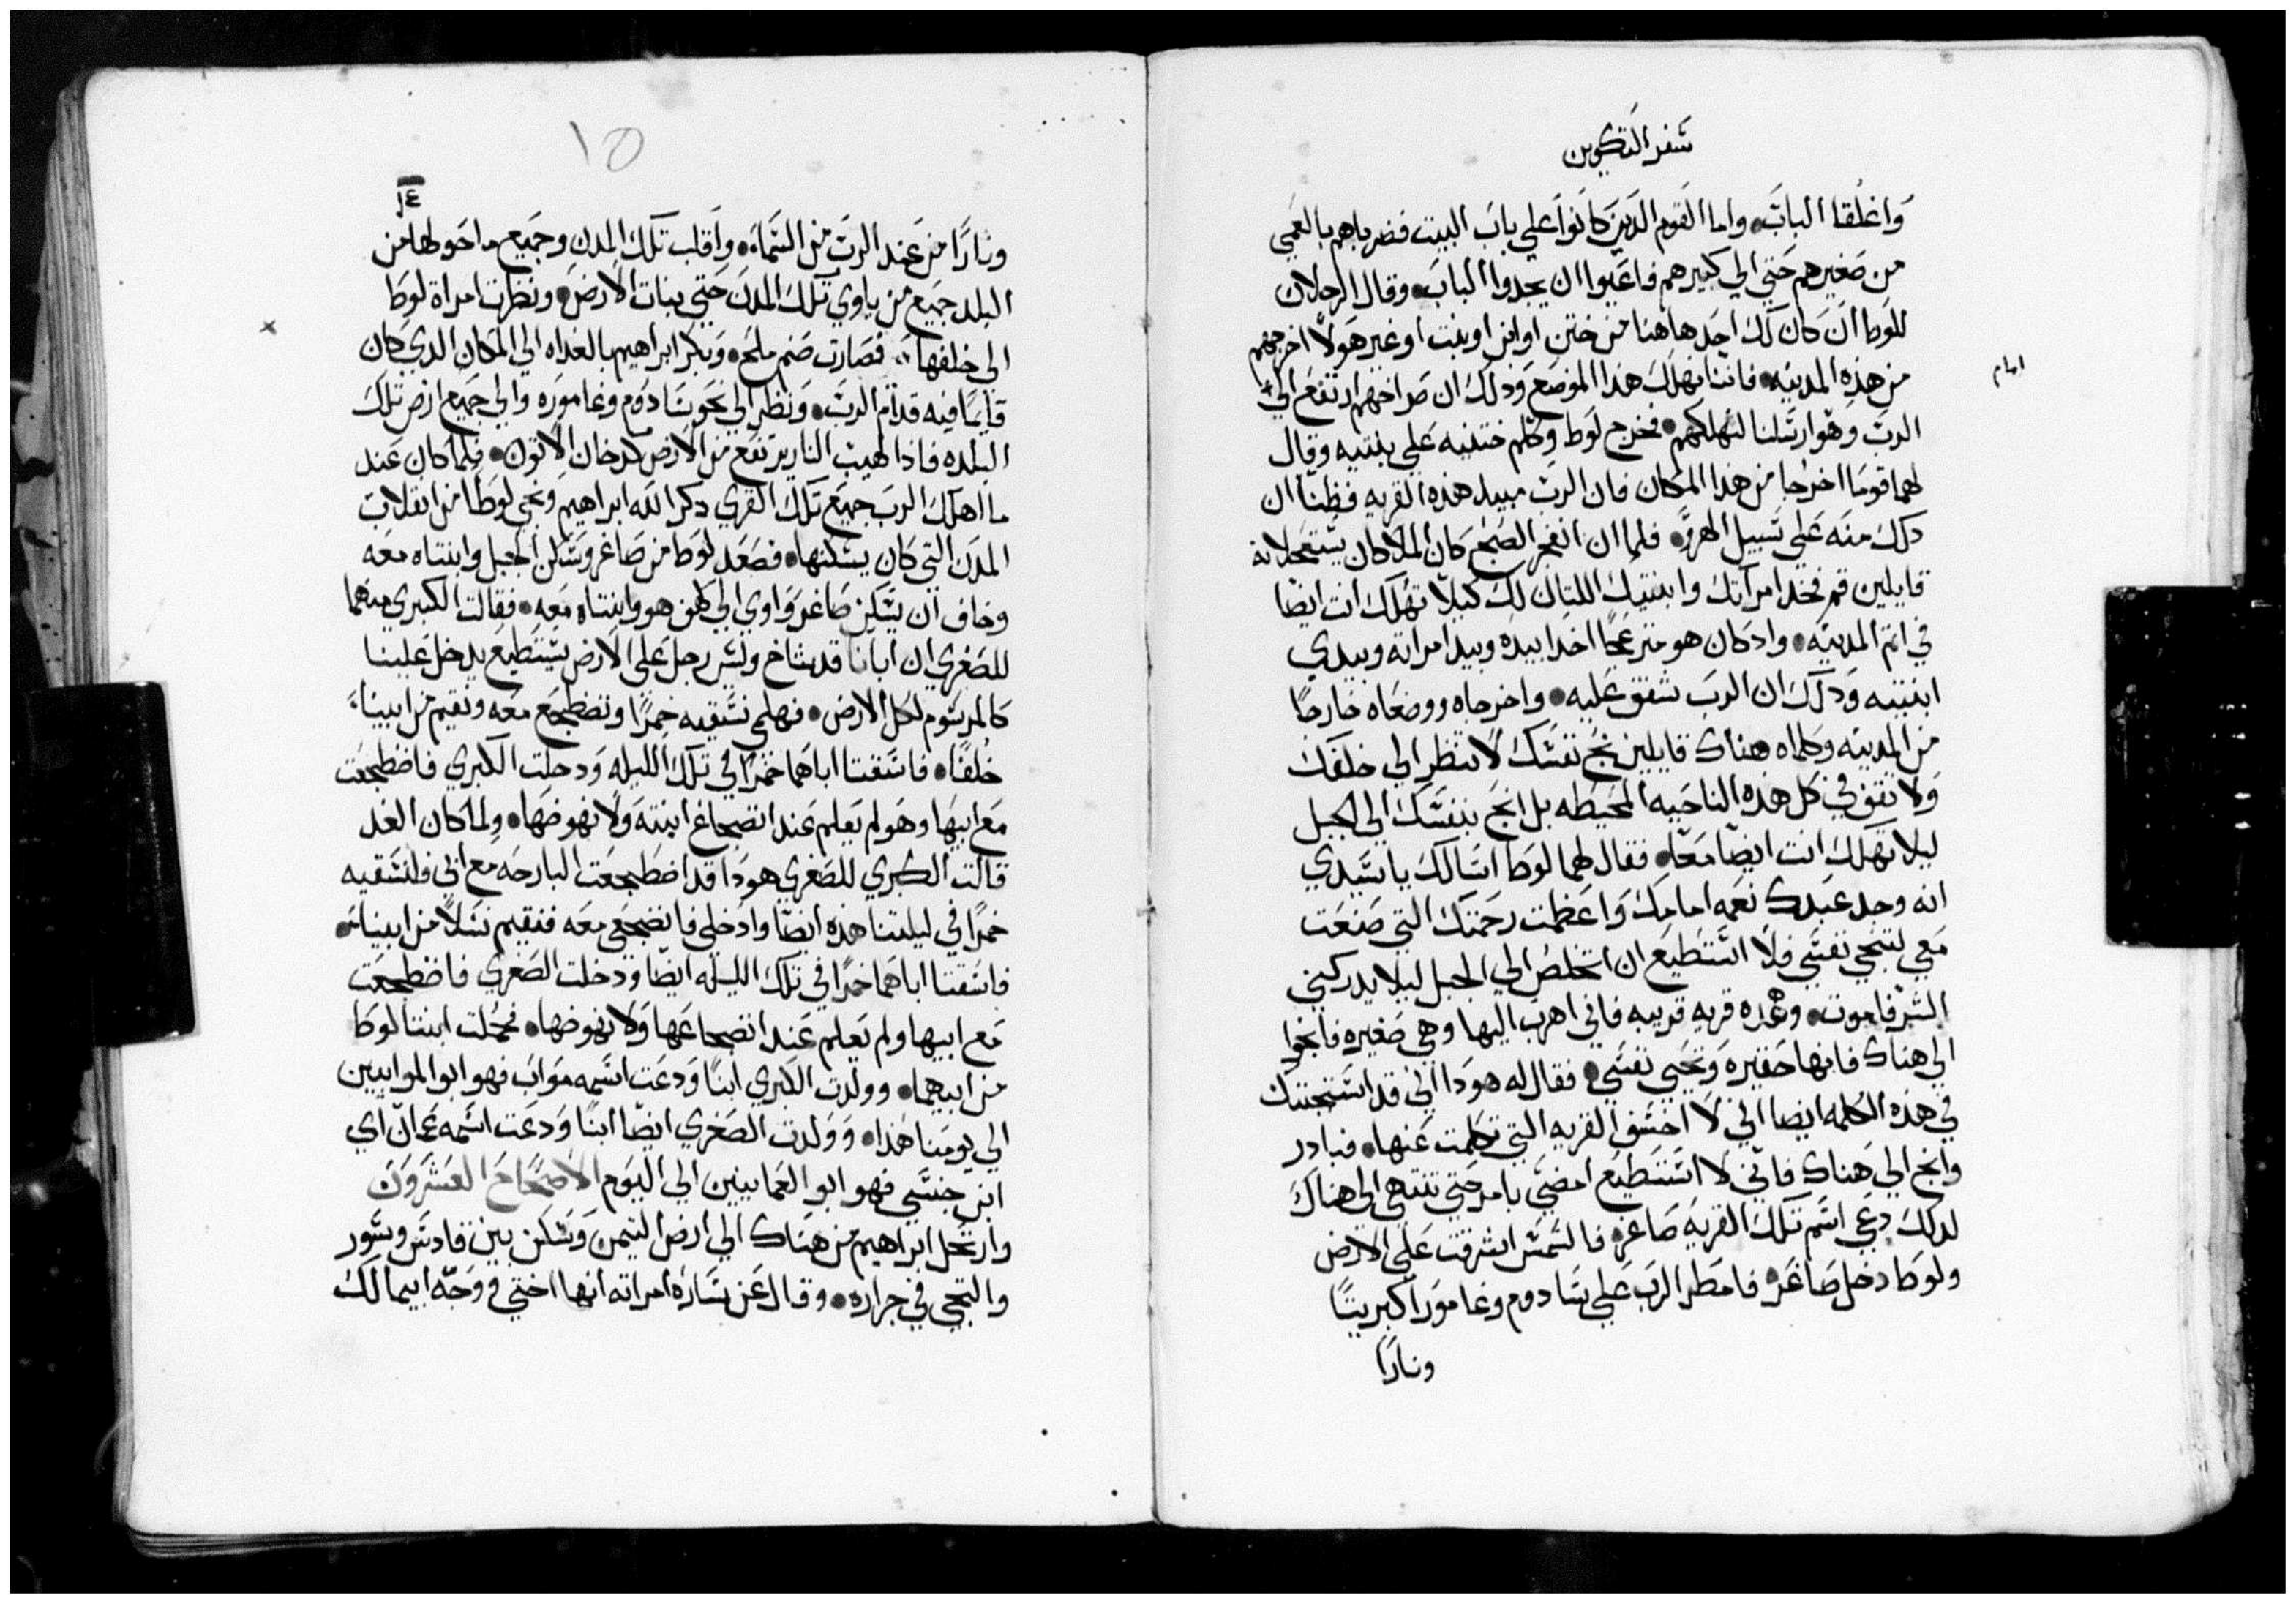 سفر التكوين
واغلقا الباب، واما القوم الدين كانوا علي باب البيت فضرباهم بالعمي
من صغيرهم حتي الي كبيرهم فاعيوا ان يجدوا الباب، وقال الرجلان
للوط ان كان لك احد هاهنا من ختن او ابن او بنت او غير هولا اخرجهم
من هذه المدينه، فاننا نهلك هدا الموضع ودلك ان صراخهم ارتفع الي
امام
الرب وهو ارسلنا لنهلكهم، فخرج لوط وكلم ختنيه علي بنتيه وقال
لهما قوما اخرجا من هدا المكان فان الرب مبيد هذه القريه فظنا ان
دلك منه علي سبيل الهزو، فلما ان انفجر الصبح كان الملاكان يستعجلانه
قايلين قم فخد امراتك وابنتيك اللتان لك كيلا تهلك انت ايضا
في اتم المدينه، واد كان هو منزعجا اخدا بيده وبيد امراته وبيدي
ابنتيه ودلك ان الرب شفق عليه، واخرجاه ووضعاه خارجا
من المدينه وكلماه هناك قايلين نج نفسك لا تنظر الي خلفك
ولا تقف في كل هذه الناحيه المحيطه بل انج بنفسك الي الجبل
ليلا تهلك انت ايضا معا، فقال لهما لوط اسالك يا سيدي
انه وجد عبدك نعمه امامك واعظمت رحمتك التي صنعت
معي لتنجي نفسي فلا استطيع ان اتخلص الي الجبل ليلا يدركني
الشر فاموت، وهده قريه قريبه فاني اهرب اليها وهي صغيره فانجوا
الي هناك فانها حقيره وتحيي نفسي، فقال له هودا اني قد استحيتك
في هذه الكلمه ايضا اني لا اخسف القريه التي تكلمت عنها، فبادر
وانج الي هناك فاني لا استطيع امضي بامر حتي تنتهي الي هناك
لدلك دعي اسم تلك القريه صاغر، فالشمس اشرقت علي الارض
ولوط دخل صاغر، فامطر الرب علي سادوم وغامورا كبريتا
ونارا
١٥
١٤
ونارا من عند الرب من السماء، واقلب تلك المدن وجميع ما حولها من
البلد جميع من ياوي تلك المدن حتي بنات الارض، ونظرت امراة لوط
الي خلفها، فصارت صنم ملح، وبكر ابراهيم بالغداه الي المكان الدي كان
قايما فيه قدام الرب، ونظر الي نحو سادوم وغاموره والي جميع ارض تلك
البلده فادا لهيب النار يرتفع من الارض كدخان الاتون، فلما كان عند
ما اهلك الرب جميع تلك القري دكر الله ابراهيم ونجي لوطا من انقلاب
المدن التي كان يسكنها، فصعد لوط من صاغر وسكن الجبل وابنتاه معه
وخاف ان يسكن صاغر واوي الي كهف هو وابنتاه معه، فقالت الكبري منهما
للصغري ان ابانا قد شاخ وليس رجل علي الارض يستطيع يدخل علينا
كالمرسوم لكل الارض، فهلمي نسقيه خمرا ونضطجع معه ونقيم من ابينا
خلفا، فاسقتا اباهما خمرا في تلك الليله ودخلت الكبري فاضطجعت
مع ابيها وهو لم يعلم عند انضجاع ابنته ولا نهوضها، ولما كان الغد
قالت الكبري للصغري هودا قد اضطجعت البارحه مع ابي فلنسقيه
خمرا في ليلتنا هذه ايضا وادخلي فانضجعي معه فنقيم نسلا من ابينا،
فاسقتا اباهما خمرا في تلك الليله ايضا ودخلت الصغري فاضطجعت
مع ابيها ولم يعلم عند انضجاعها ولا نهوضها، فحبلت ابنتا لوط
من ابيهما، وولدت الكبري ابنا ودعت اسمه مواب فهو ابو الموابيين
الي يومنا هذا، وولدت الصغري ايضا ابنا ودعت اسمه عمان اي
ابن جنسي فهو ابو العمانيين الي اليوم الاصحاح العشرون
وارتحل ابراهيم من هناك الي ارض التيمن وسكن بين قادس وسور
والتجي في جراره، وقال عن ساره امراته انها اختي في وجه ابيمالك